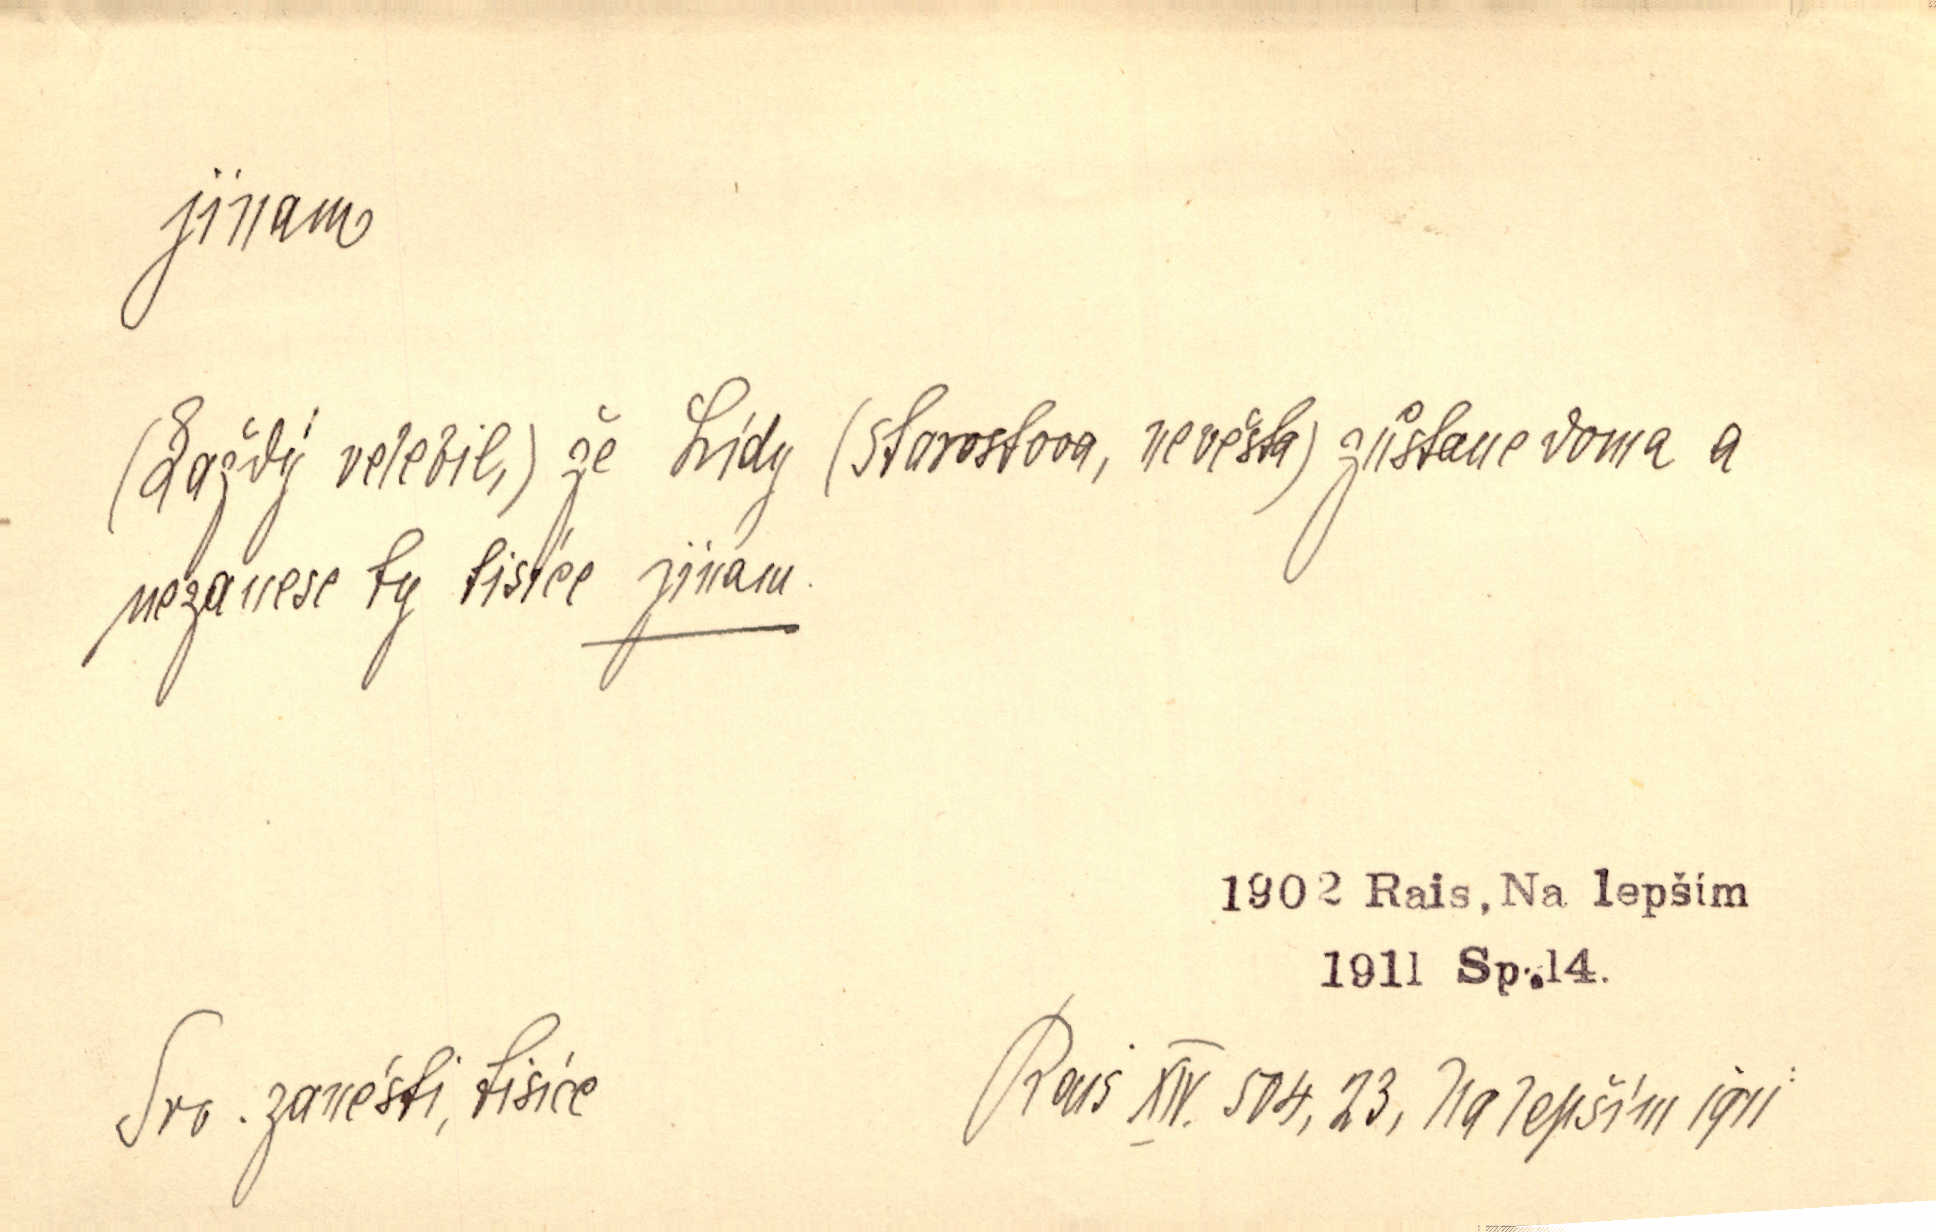 jinam
(Každý velebil,) že Lídy (starostova, nevěsta) zůstane doma a
nezanese ty tisíce jinam.
1902 Rais, Na lepším
1911 Sp. 14.
Srv. zanésti, tisíce
Rais XIV. 504, 23, Na lepším 1911